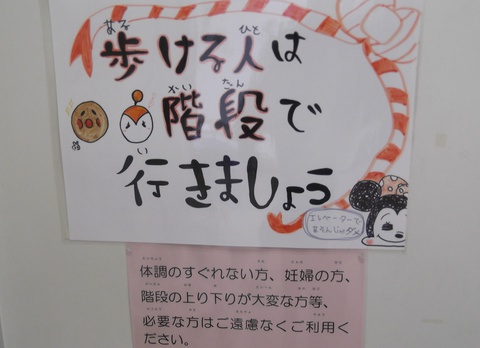 歩ける人は
階段で
行きましょう
エレベーターで
あそんじゃダメ
体調のすぐれない方、妊婦の方、
階段の上り下りが大変な方等、
必要な方はご遠慮なくご利用く
ださい。